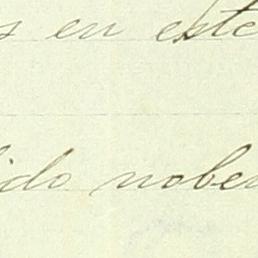 s en este
ido nober